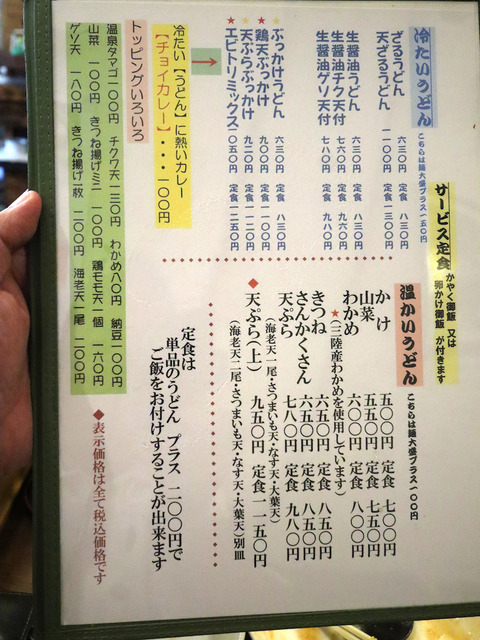 サービス定食 かやく御飯 又は
卵かけ御飯 が付きます
冷たいうどん こちらは麺大盛プラス一五〇円
ざるうどん 六三〇円 定食 八三〇円
天ざるうどん 一一〇〇円 定食 一三〇〇円
生醤油うどん 六三〇円 定食 八三〇円
生醤油チク天付 七六〇円 定食 九六〇円
生醤油ゲソ天付 七八〇円 定食 九八〇円
ぶっかけうどん 六三〇円 定食 八三〇円
★鶏天ぶっかけ 九〇〇円 定食 一一〇〇円
★天ぷらぶっかけ 九二〇円 定食 一一二〇円
★エビトリミックス 一〇五〇円 定食 一二五〇円
→
冷たい【うどん】に熱いカレー
【チョイカレー】・・・一〇〇円
トッピングいろいろ
温泉タマゴ 一〇〇円 チクワ天 一三〇円 わかめ 八〇円 納豆 一〇〇円
山菜 一〇〇円 きつね揚げミニ 一〇〇円 鶏モモ天一個 一六〇円
ゲソ天 一八〇円 きつね揚げ一枚 二〇〇円 海老天一尾 二〇〇円
温かいうどん こちらは麺大盛プラス一〇〇円
かけ 五〇〇円 定食 七〇〇円
山菜 五五〇円 定食 七五〇円
わかめ 六〇〇円 定食 八〇〇円
(★三陸産わかめを使用しています)
きつね 六五〇円 定食 八五〇円
さんかくさん 六五〇円 定食 八五〇円
天ぷら 七八〇円 定食 九八〇円
(海老天一尾・さつまいも天・なす天・大葉天)
◆天ぷら(上) 九五〇円 定食 一一五〇円
(海老天二尾・さつまいも天・なす天・大葉天)別皿
定食は
単品のうどん プラス 二〇〇円で
ご飯をお付けすることが出来ます
◆表示価格は全て税込価格です